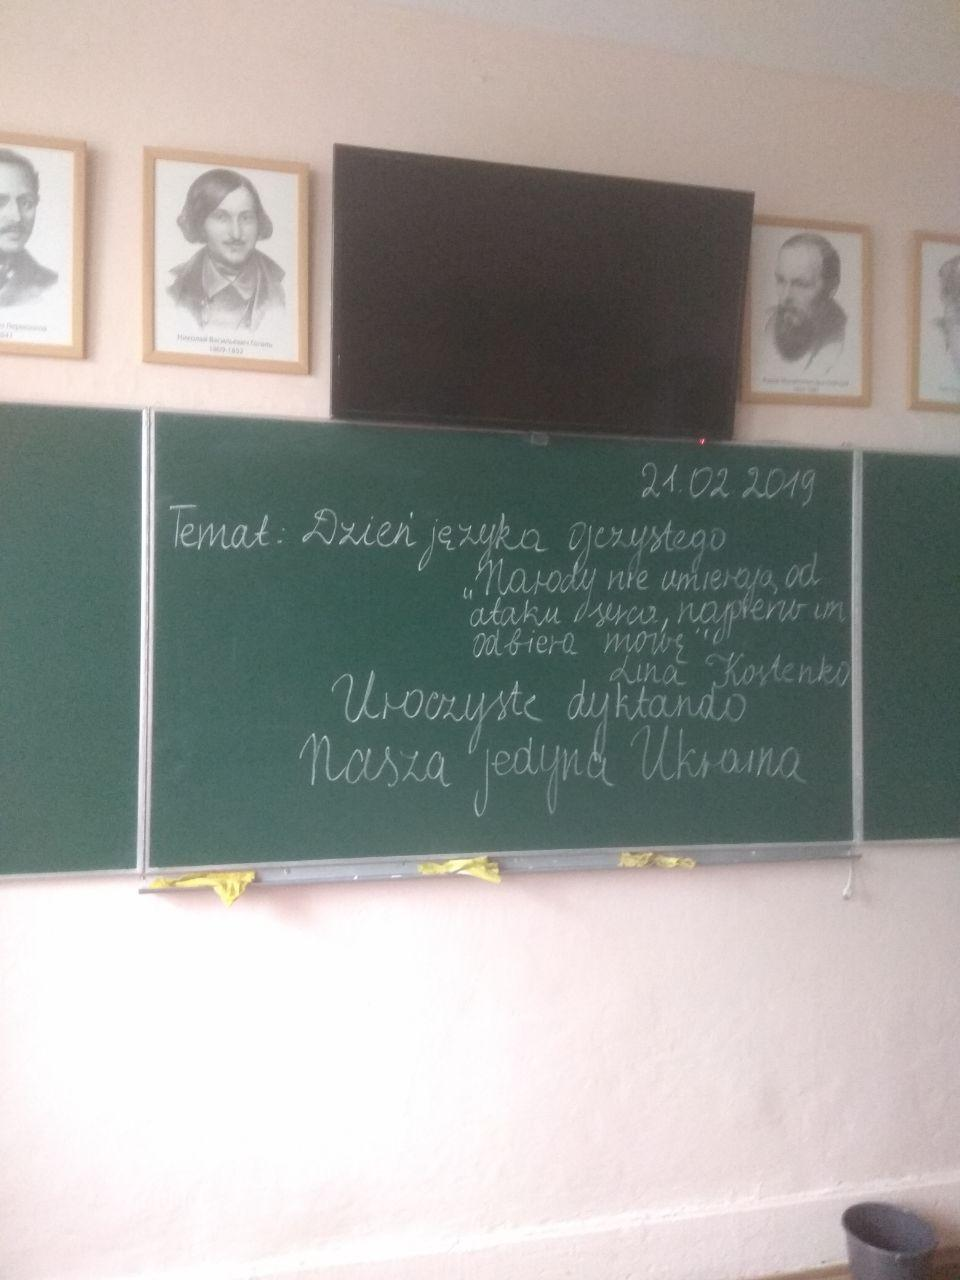 Лермонтов
1841
Николай Васильевич Гоголь
1809-1852
21.02 2019
Temat: Dzień języka ojczystego
„Narody nie umierają od
ataku serca, najpierw im
odbiera mowę"
Lina Kostenko
Uroczyste dyktando
Nasza jedyna Ukraina